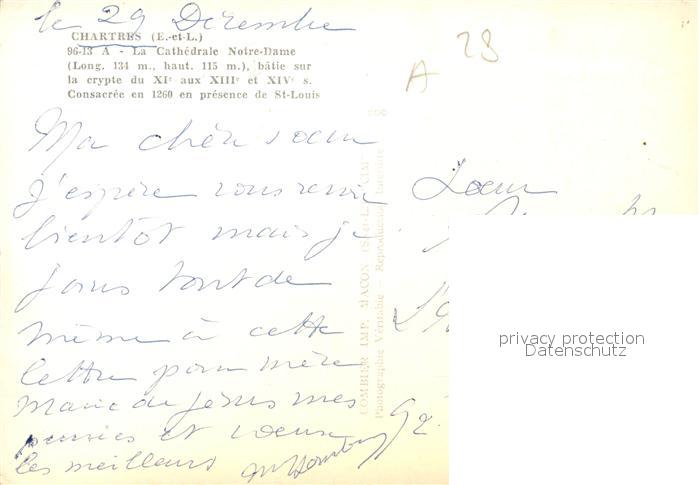 le 29 Décembre
CHARTRES (E.-et-L.)
96-13 A - La Cathédrale Notre-Dame
(Long. 134 m., haut. 115 m.), bâtie sur
la crypte du XIe aux XIIIe et XIVe s.
Consacrée en 1260 en présence de St-Louis
A 28
Ma chère soeur
J'espère vous revoir
bientôt mais je
joins tout de
même à cette
lettre pour mère
Marie de Jésus mes
pensées et voeux
les meilleurs
COMBIER IMP. MACON
Photographie Véritable - Reproduction Interdite
Soeur
92
privacy protection
Datenschutz